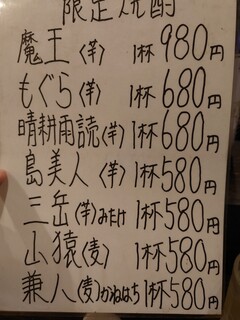 限定焼酎
魔王〈芋〉 1杯980円
もぐら〈芋〉 1杯680円
晴耕雨読〈芋〉 1杯680円
島美人〈芋〉 1杯580円
三岳〈芋〉みたけ 1杯580円
山猿〈麦〉 1杯580円
兼人〈麦〉かねはち 1杯580円